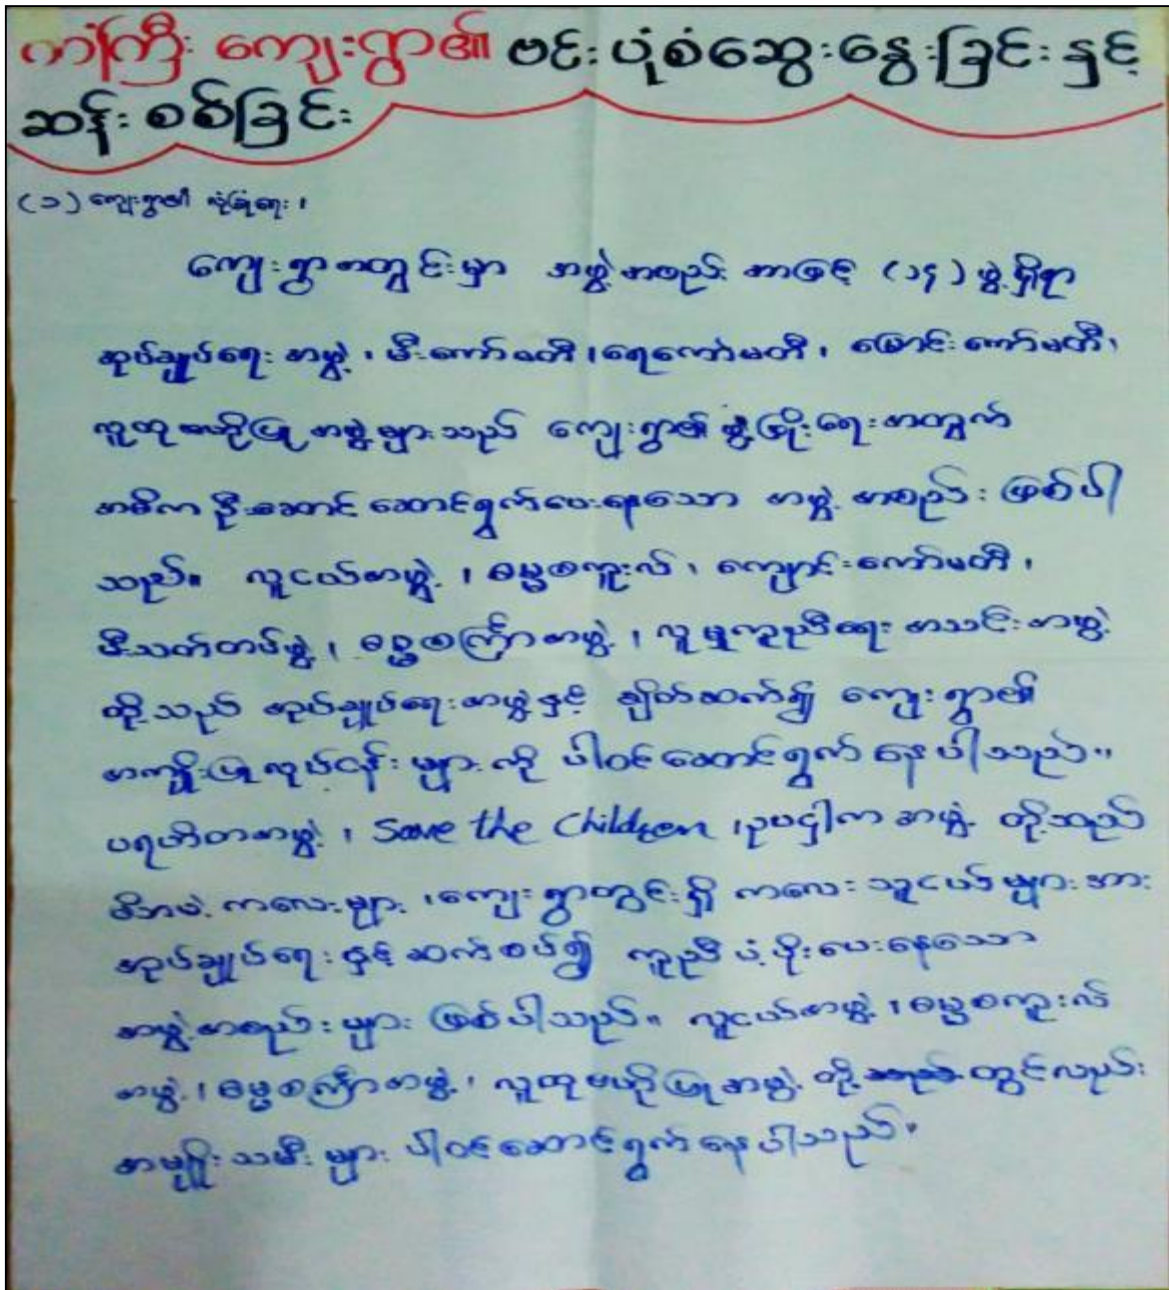 ကံကြီး ကျေးရွာ၏ ဗင်းပုံစံဆွေးနွေးခြင်းနှင့်
ဆန်းစစ်ခြင်း
(၁) ကျေးရွာ၏
ကျေးရွာအတွင်းမှာ အဖွဲ့အစည်း အားဖြင့် (၁၄) ဖွဲ့ရှိရာ
အုပ်ချုပ်ရေးအဖွဲ့၊ မီးကော်မတီ၊ ရေကော်မတီ၊ မြောင်းကော်မတီ၊
လူထုဗဟိုပြုအဖွဲ့များသည် ကျေးရွာ၏ ဖွံ့ဖြိုးရေးအတွက်
အဓိက ဦးဆောင် ဆောင်ရွက်ပေးနေသော အဖွဲ့အစည်း ဖြစ်ပါ
သည်။ လူငယ်အဖွဲ့၊ ဓမ္မစကူးလ်၊ ကျောင်းကော်မတီ၊
မီးသတ်တပ်ဖွဲ့၊ ဓမ္မစကြာအဖွဲ့၊ လူမှုကူညီရေး အသင်းအဖွဲ့
တို့သည် အုပ်ချုပ်ရေးအဖွဲ့နှင့် ချိတ်ဆက်၍ ကျေးရွာ၏
အကျိုးပြုလုပ်ငန်းများကို ပါဝင်ဆောင်ရွက်နေပါသည်။
ပရဟိတအဖွဲ့၊ Save the Children ၊ ဥပဌါကအဖွဲ့ တို့သည်
မိဘမဲ့ ကလေးများ၊ ကျေးရွာတွင်းရှိ ကလေးသူငယ်များအား
အုပ်ချုပ်ရေးနှင့်ဆက်စပ်၍ ကူညီပံ့ပိုးပေးနေသော
အဖွဲ့အစည်းများ ဖြစ်ပါသည်။ လူငယ်အဖွဲ့၊ ဓမ္မစကူးလ်
အဖွဲ့၊ ဓမ္မစကြာအဖွဲ့၊ လူထုဗဟိုပြုအဖွဲ့ တို့တွင်လည်း
အမျိုးသမီးများ ပါဝင်ဆောင်ရွက်နေပါသည်။